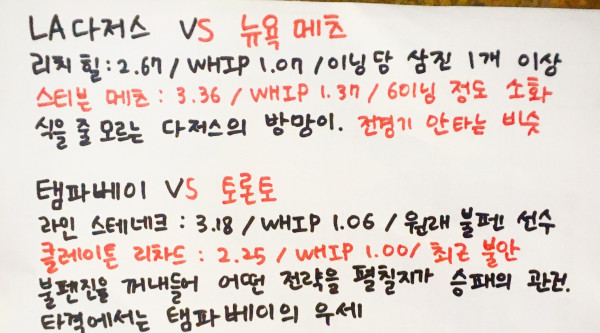 LA다저스 VS 뉴욕 메츠
리치 힐 : 2.67 / WHIP 1.07 / 이닝당 삼진 1개 이상
스티븐 메츠 : 3.36 / WHIP 1.37 / 6이닝 정도 소화
식을 줄 모르는 다저스의 방망이. 전경기 안타는 비슷
탬파베이 VS 토론토
라인 스테네크 : 3.18 / WHIP 1.06 / 원래 불펜 선수
클레이튼 리차드 : 2.25 / WHIP 1.00/ 최근 불안
불펜진을 꺼내들어 어떤 전략을 펼칠지가 승패의 관건.
타격에서는 탬파베이의 우세